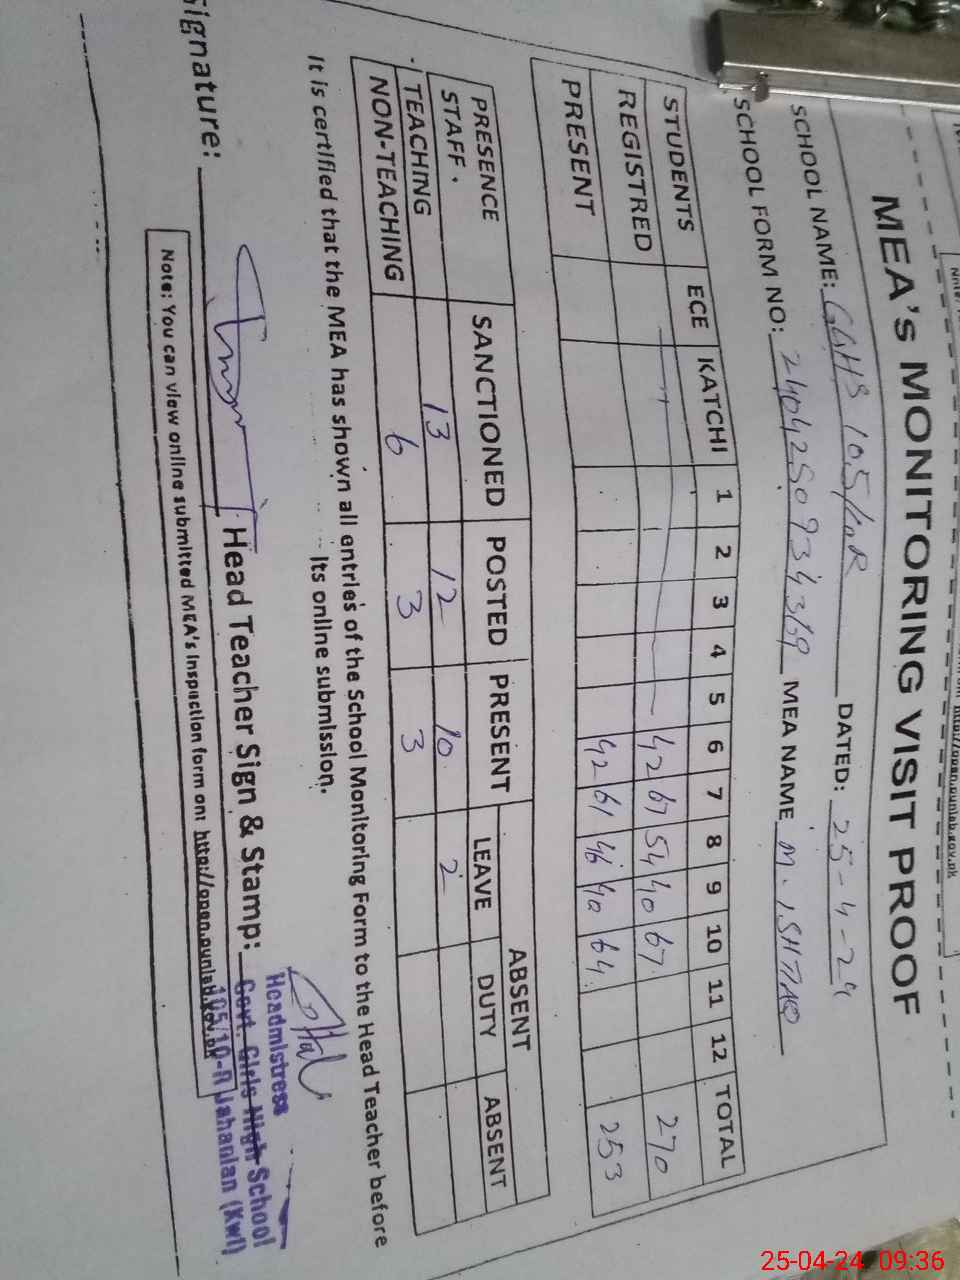 MEA's MONITORING VISIT PROOF
SCHOOL NAME: GGHS 105/10R DATED: 25-4-24
SCHOOL FORM NO: MEA NAME M. ISHTIAQ
STUDENTS ECE KATCHI 1 2 3 4 5 6 7 8 9 10 11 12 TOTAL
REGISTRED 42 67 54 40 67 270
PRESENT 42 61 46 40 64 253
PRESENCE SANCTIONED POSTED PRESENT ABSENT
STAFF. LEAVE DUTY ABSENT
TEACHING 13 12 10 2
NON-TEACHING 6 3 3
It is certified that the MEA has shown all entries of the School Monitoring Form to the Head Teacher before
its online submission.
Signature: Head Teacher Sign & Stamp:
Headmistress
Govt. Girls High School
105/10-R Jahanian (Kwl)
Note: You can view online submitted MEA's inspection form on: http://open.punjab.gov.pk
25-04-24 09:36